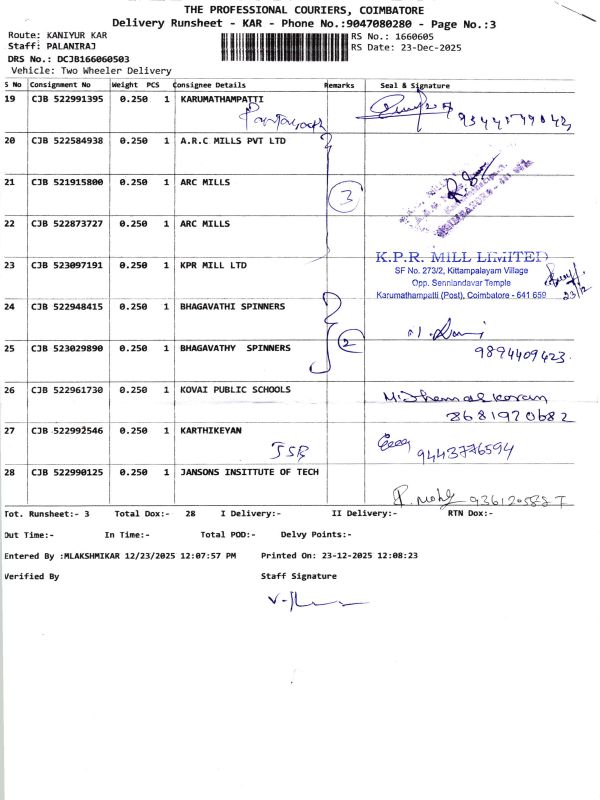 THE PROFESSIONAL COURIERS, COIMBATORE
Delivery Runsheet - KAR - Phone No.:9047080280 - Page No.:3
Route: KANIYUR KAR
RS No.: 1660605
Staff: PALANIRAJ
RS Date: 23-Dec-2025
DRS No.: DCJB166060503
Vehicle: Two Wheeler Delivery
S No Consignment No Weight PCS Consignee Details Remarks Seal & Signature
19 CJB 522991395 0.250 1 KARUMATHAMPATTI
20 CJB 522584938 0.250 1 A.R.C MILLS PVT LTD
21 CJB 521915800 0.250 1 ARC MILLS
3
22 CJB 522873727 0.250 1 ARC MILLS
K.P.R. MILL LIMITED
23 CJB 523097191 0.250 1 KPR MILL LTD
SF No. 273/2, Kittampalayam Village
Opp. Senniandavar Temple
Karumathampatti (Post), Coimbatore - 641 659
23/12
24 CJB 522948415 0.250 1 BHAGAVATHI SPINNERS
2
25 CJB 523029890 0.250 1 BHAGAVATHY SPINNERS
9894409423.
26 CJB 522961730 0.250 1 KOVAI PUBLIC SCHOOLS
8681970682
27 CJB 522992546 0.250 1 KARTHIKEYAN
9443776594
28 CJB 522990125 0.250 1 JANSONS INSITTUTE OF TECH
Tot. Runsheet:- 3 Total Dox:- 28 I Delivery:- II Delivery:- RTN Dox:-
Out Time:- In Time:- Total POD:- Delvy Points:-
Entered By :MLAKSHMIKAR 12/23/2025 12:07:57 PM Printed On: 23-12-2025 12:08:23
Verified By Staff Signature